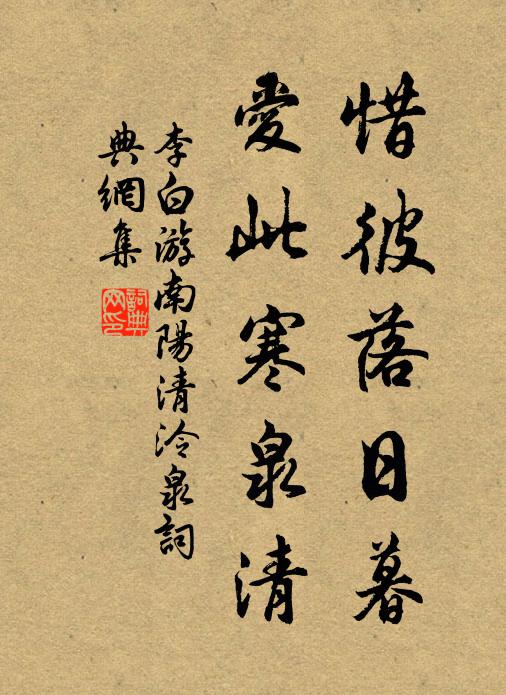 惜彼落日暮
愛此寒泉清
李白游南陽清泠泉詞
典網集
詞典網印